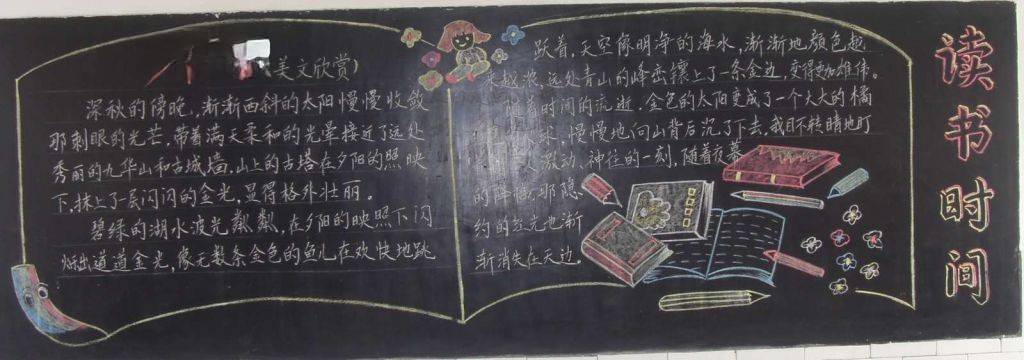 (美文欣赏)
深秋的傍晚,渐渐西斜的太阳慢慢收敛
那刺眼的光芒,带着满天柔和的光晕接近了远处
秀丽的九华山和古城墙,山上的古塔在夕阳的照映
下,抹上了一层闪闪的金光,显得格外壮丽。
碧绿的湖水波光粼粼,在夕阳的映照下闪
烁出道道金光,像无数条金色的鱼儿在欢快地跳
跃着,天空像明净的海水,渐渐地颜色越
来越浓,远处青山的峰峦镶上了一条金边,变得更加雄伟。
随着时间的流逝,金色的太阳变成了一个大大的橘
球,慢慢地向山背后沉了下去,我目不转睛地盯
激动、神往的一刻,随着夜幕
的降临,那隐
约的光也渐
渐消失在天边。
读书时间